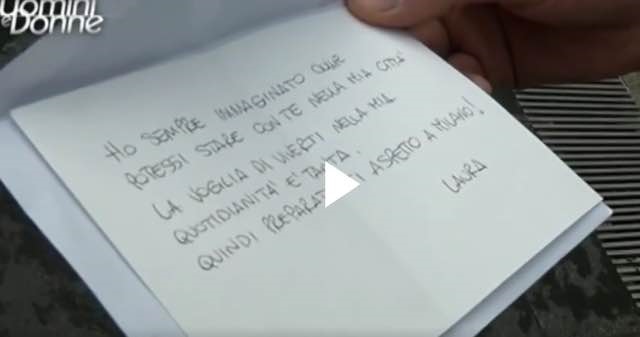 Uomini
e Donne
HO SEMPRE IMMAGINATO COME
POTESSI STARE CON TE NELLA MIA CITTÀ
LA VOGLIA DI VIVERTI NELLA MIA
QUOTIDIANITÀ E' TANTA.
QUINDI PREPARATI TI ASPETTO A MILANO!
LAURA